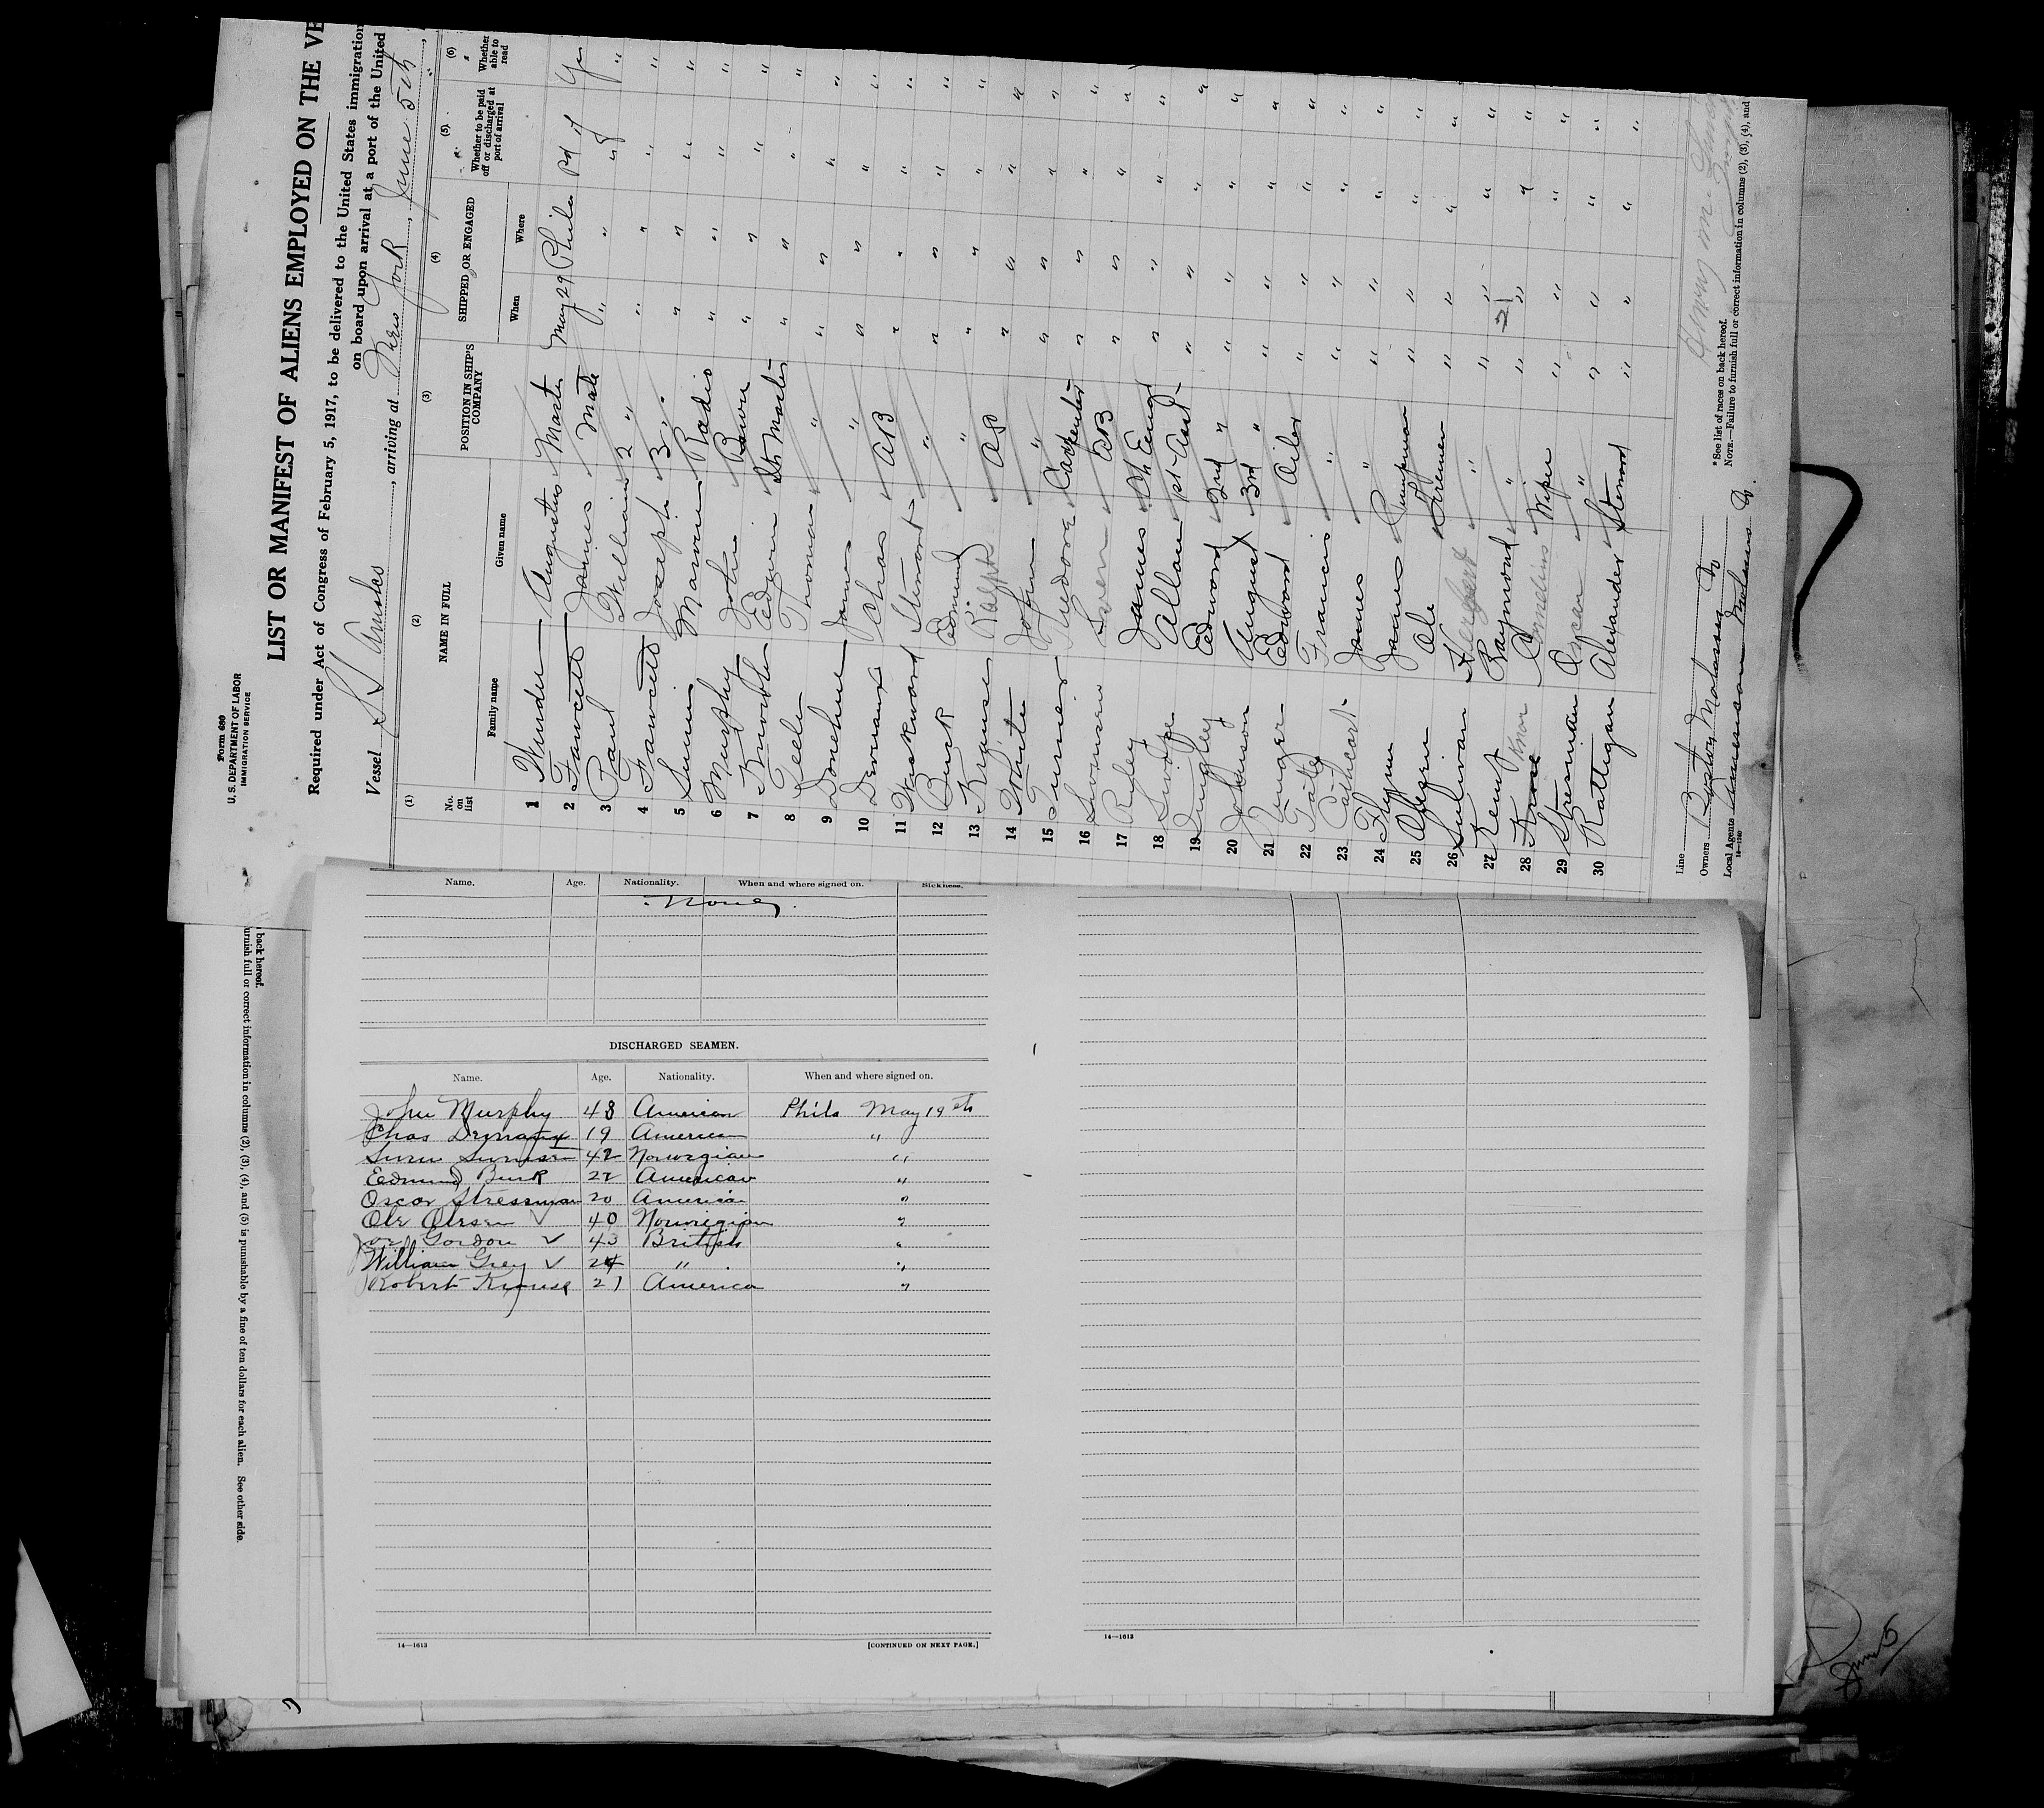 Form 680
U. S. DEPARTMENT OF LABOR
IMMIGRATION SERVICE
LIST OR MANIFEST OF ALIENS EMPLOYED ON THE VE
Required under Act of Congress of February 5, 1917, to be delivered to the United States immigration
on board upon arrival at a port of the United
Vessel SS , arriving at New York, June 5th,
(1) (2) (3) (4) (5) (6)
No. on list NAME IN FULL POSITION IN SHIP'S COMPANY SHIPPED OR ENGAGED Whether to be paid off or discharged at port of arrival Whether able to read
Family name Given name When Where
1 Wurder Augustus Master May 29 Phila Pd off Yes
2 Fawcett James Mate " " " "
3 Paul William 2 " " " " "
4 Fawcett Joseph 3 " " " " "
5 Marvin Radio " " " "
6 Murphy John Bosun " " " "
7 Knowles Edwin St Master " " " "
8 Keele Thomas " " " " "
9 Donohue James " " " " "
10 Chas AB " " " "
11 Stewart " " " " "
12 Burk Edmund " " " " "
13 Krause Ralph " " " "
14 White John " " " " "
15 Turner Carpenter " " " "
16 Sven AB " " " "
17 Ryley James Ch Eng " " " "
18 Allan 1st Asst " " " "
19 Quigley Edward 2nd " " " " "
20 Johnson August 3rd " " " " "
21 Edward Oiler " " " "
22 Tate Francis " " " " "
23 Cathcart James " " " " "
24 Flynn James Pumpman " " " "
25 Olegen Ole Firemen " " " "
26 Sulivan Herbert " " " " "
27 Kemp Raymond " " " " "
28 Knox Cornelius Wiper " " " "
29 Stresman Oscar " " " " "
30 Rattigan Alexander Steward " " " "
21
Line
Owners Boston Molasses Co
Local Agents American Molasses Co.
14—1240
*See list of races on back hereof.
NOTE.—Failure to furnish full or correct information in columns (2), (3), (4), and
back hereof.
urnish full or correct information in columns (2), (3), (4), and (5) is punishable by a fine of ten dollars for each alien. See other side.
Name. Age. Nationality. When and where signed on. Sickness.
None
DISCHARGED SEAMEN.
Name. Age. Nationality. When and where signed on.
John Murphy 48 American Phila May 19th
Chas 19 American "
42 Norwegian "
Edmund Burk 22 American "
Oscar Stressman 20 American "
Ole Olesen 40 Norwegian "
Gordon 43 British "
William Grey 24 " "
Robert Krause 21 America "
14—1613 [CONTINUED ON NEXT PAGE.]
14—1613
June 5